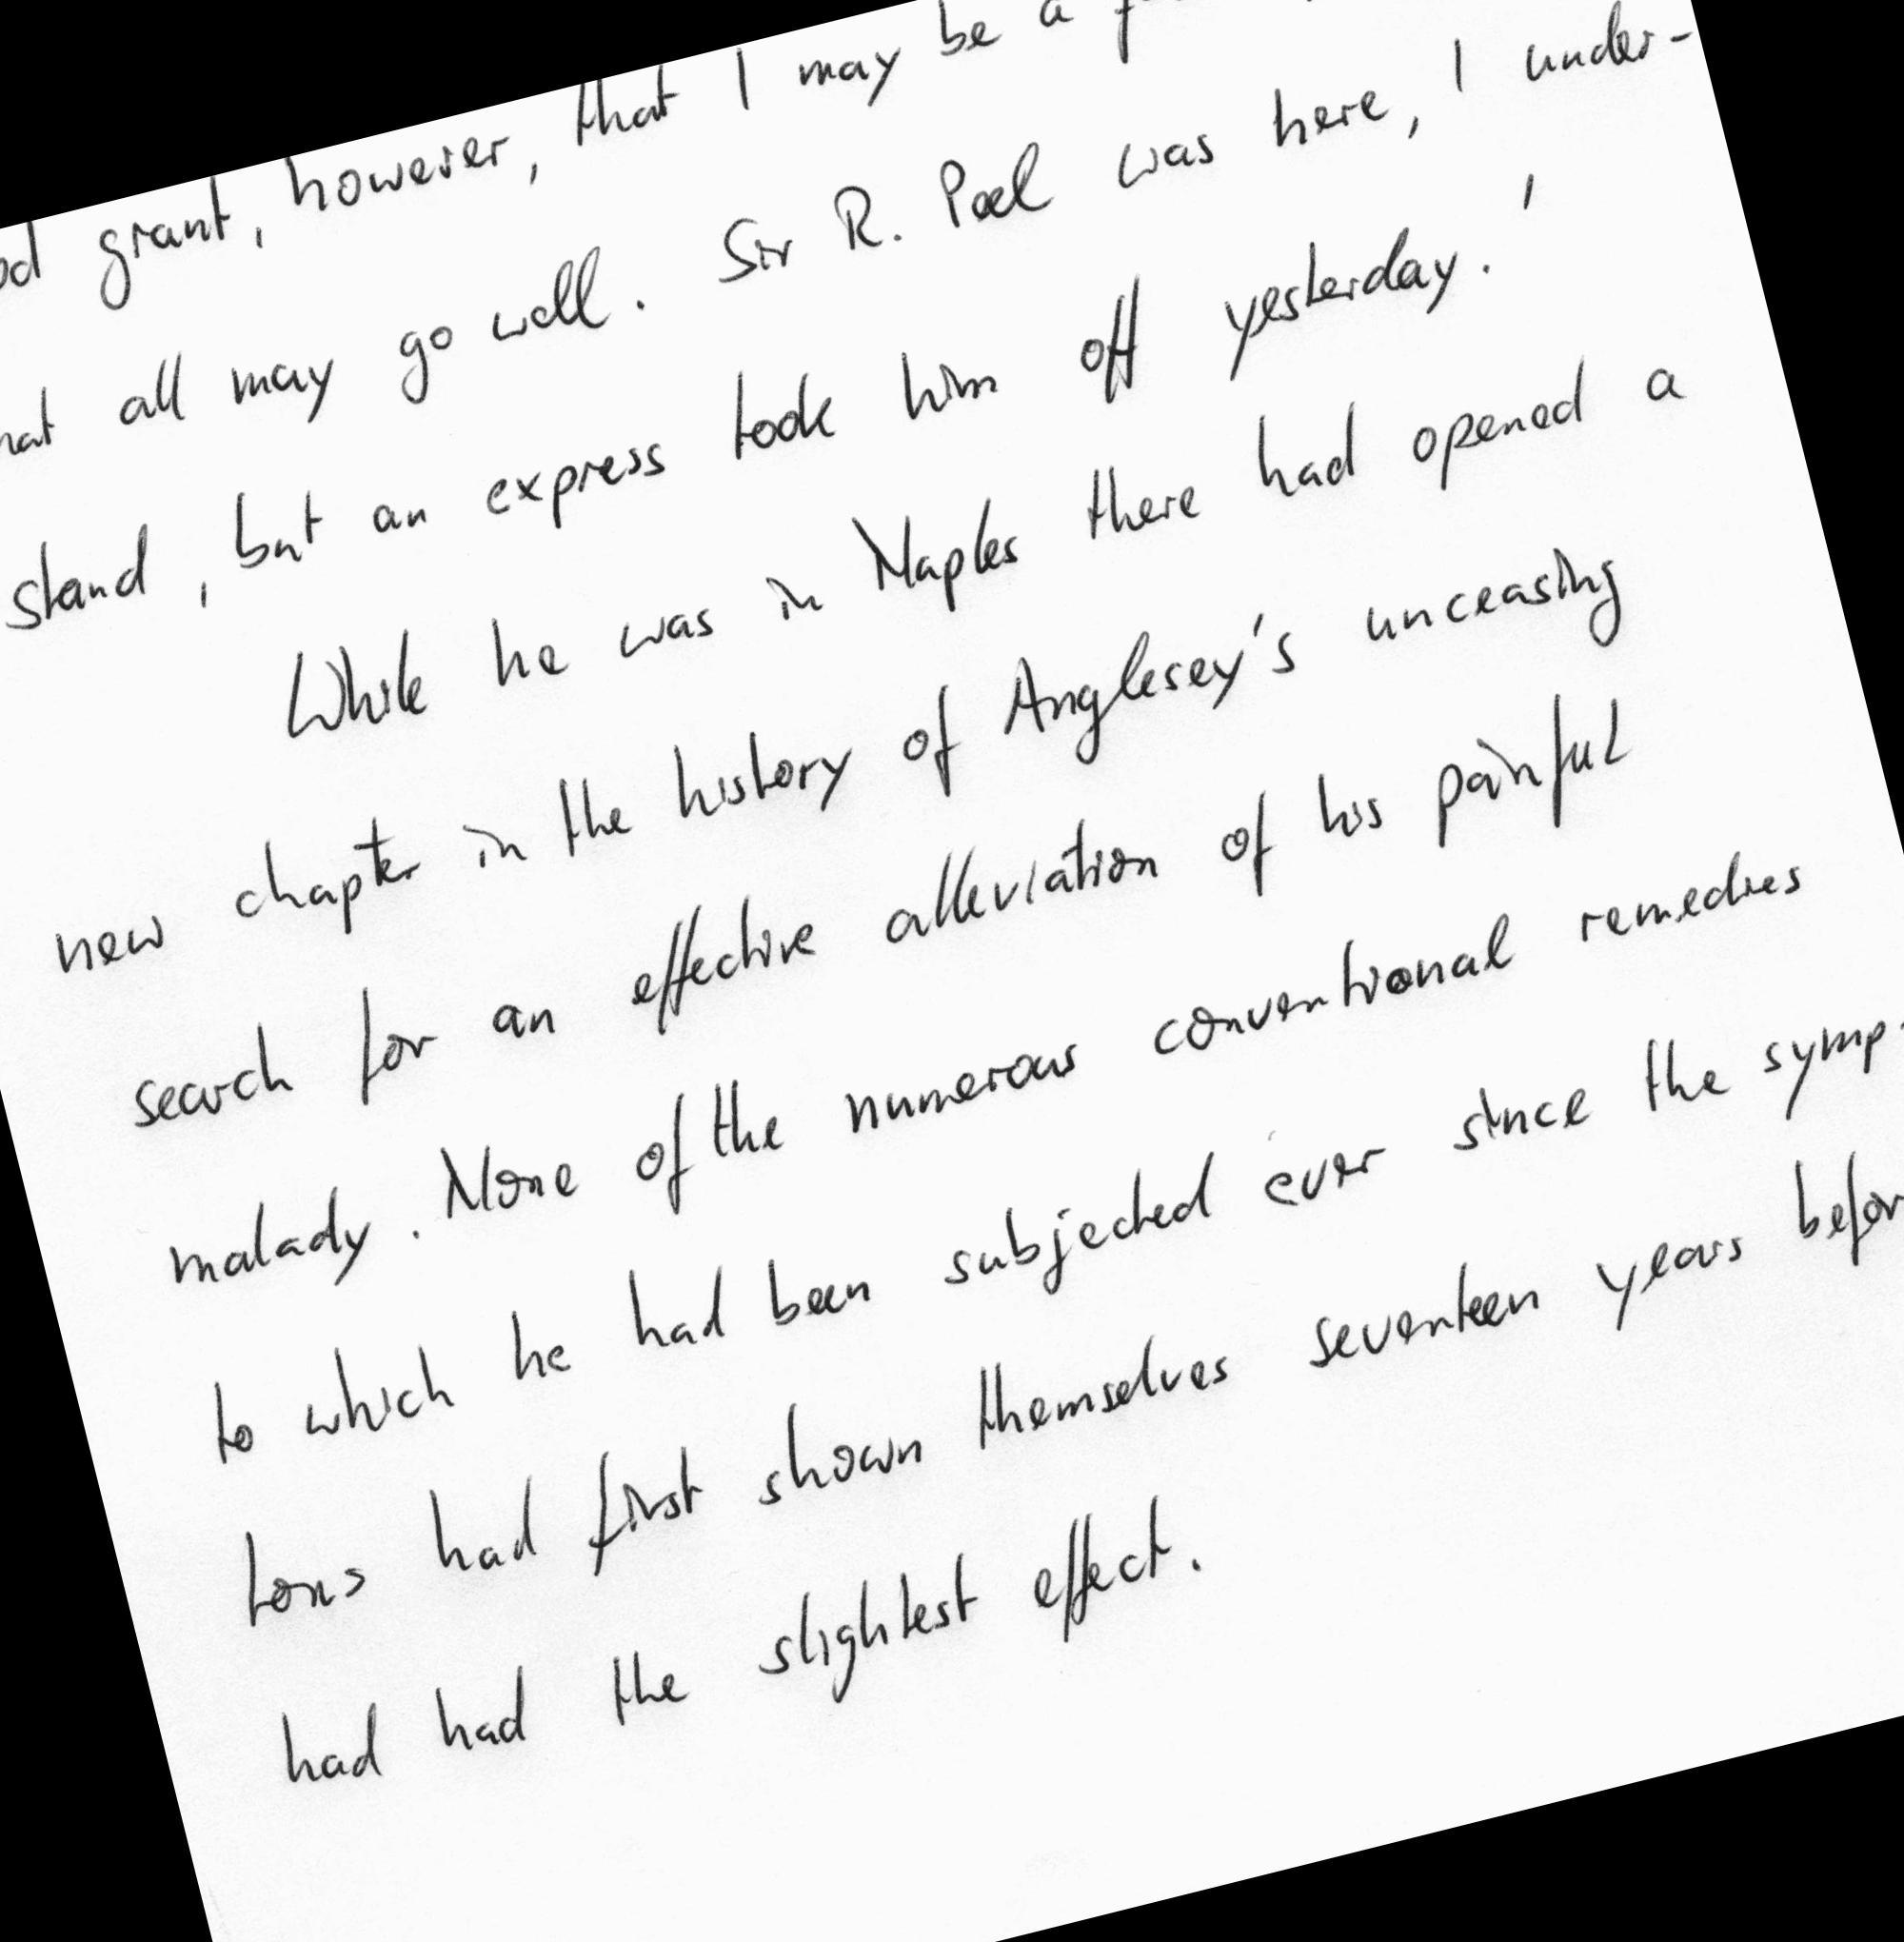 grant, however, that I may be a
all may go well. Sir R. Peel was here, I under-
stand, but an express took him off yesterday.'
While he was in Naples there had opened a
new chapter in the history of Anglesey's unceasing
search for an effective alleviation of his painful
malady. None of the numerous conventional remedies
to which he had been subjected ever since the symp-
toms had first shown themselves seventeen years befor
had had the slightest effect.